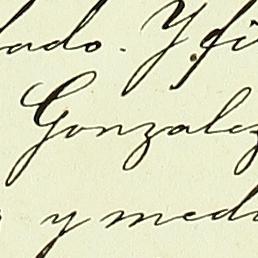 ado. Y fi
Gonzalez
y med